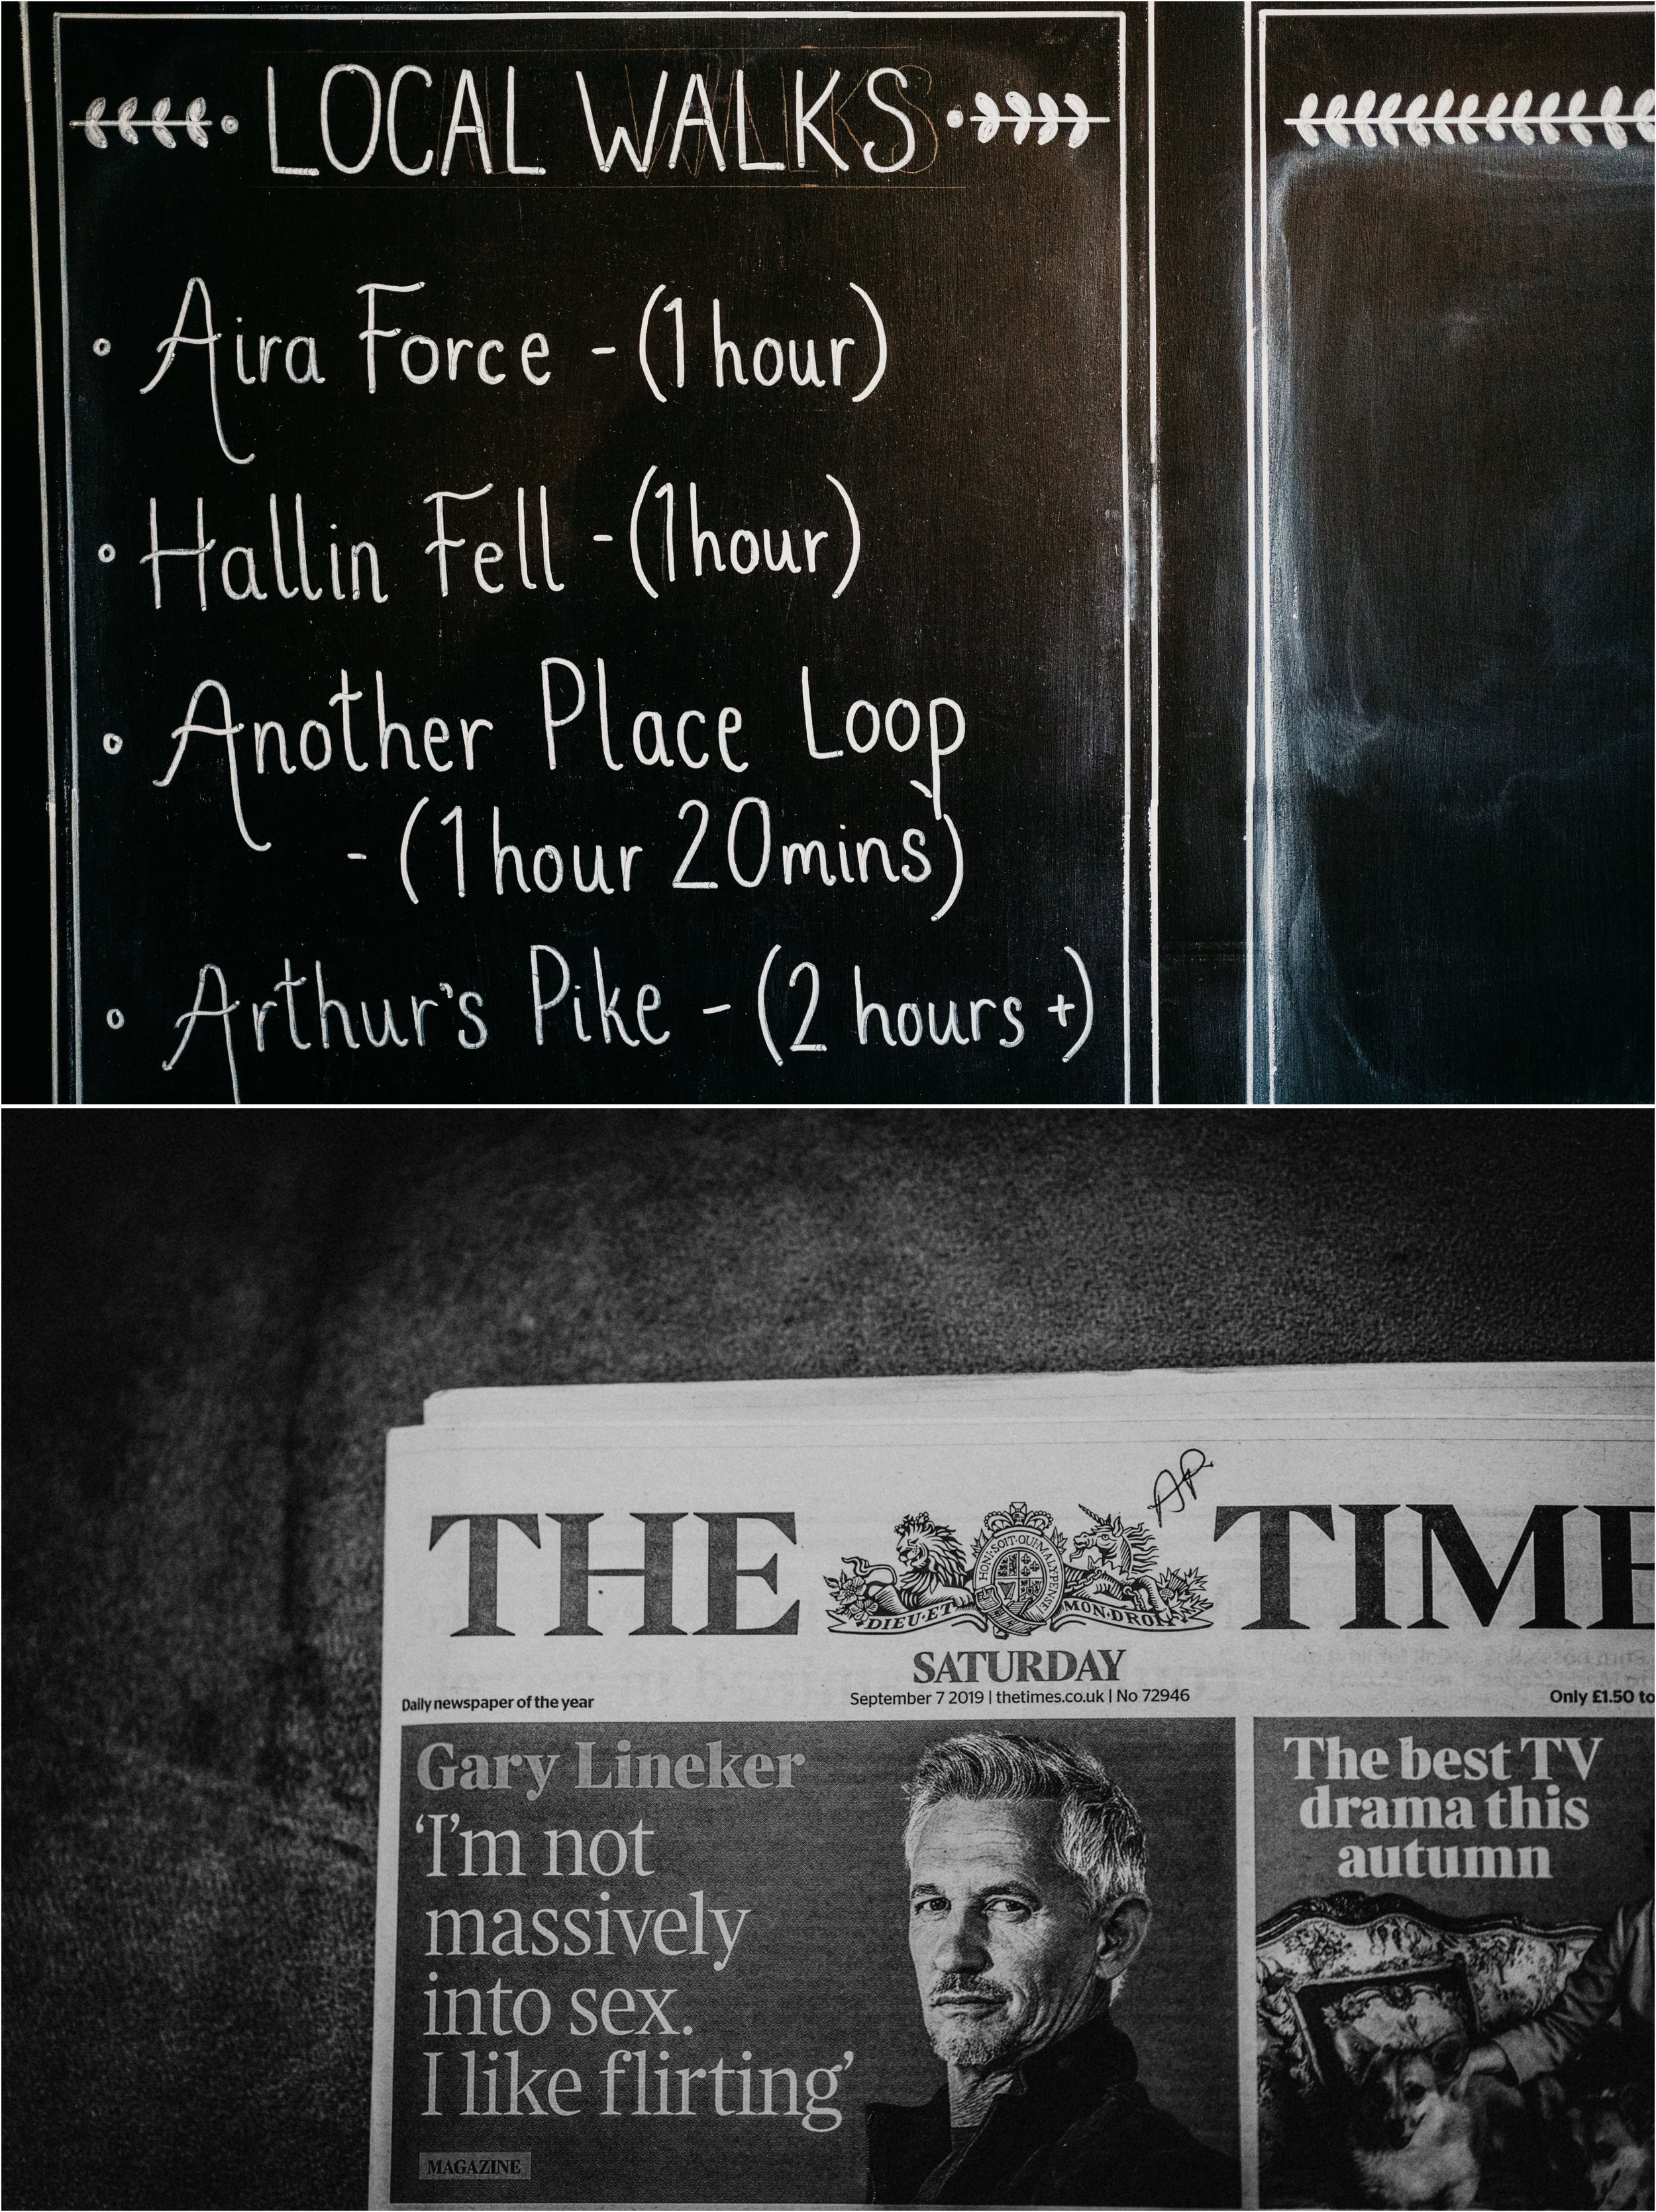 LOCAL WALKS
Aira Force - (1 hour)
Hallin Fell - (1hour)
Another Place Loop
- (1 hour 20mins)
Arthur's Pike - (2 hours +)
AP
THE TIME
HONI·SOIT·QUI·MAL·Y·PENSE
DIEU·ET MON·DROIT
SATURDAY
Daily newspaper of the year
September 7 2019 | thetimes.co.uk | No 72946
Only £1.50 to
Gary Lineker
‘I’m not
massively
into sex.
I like flirting’
MAGAZINE
The best TV
drama this
autumn